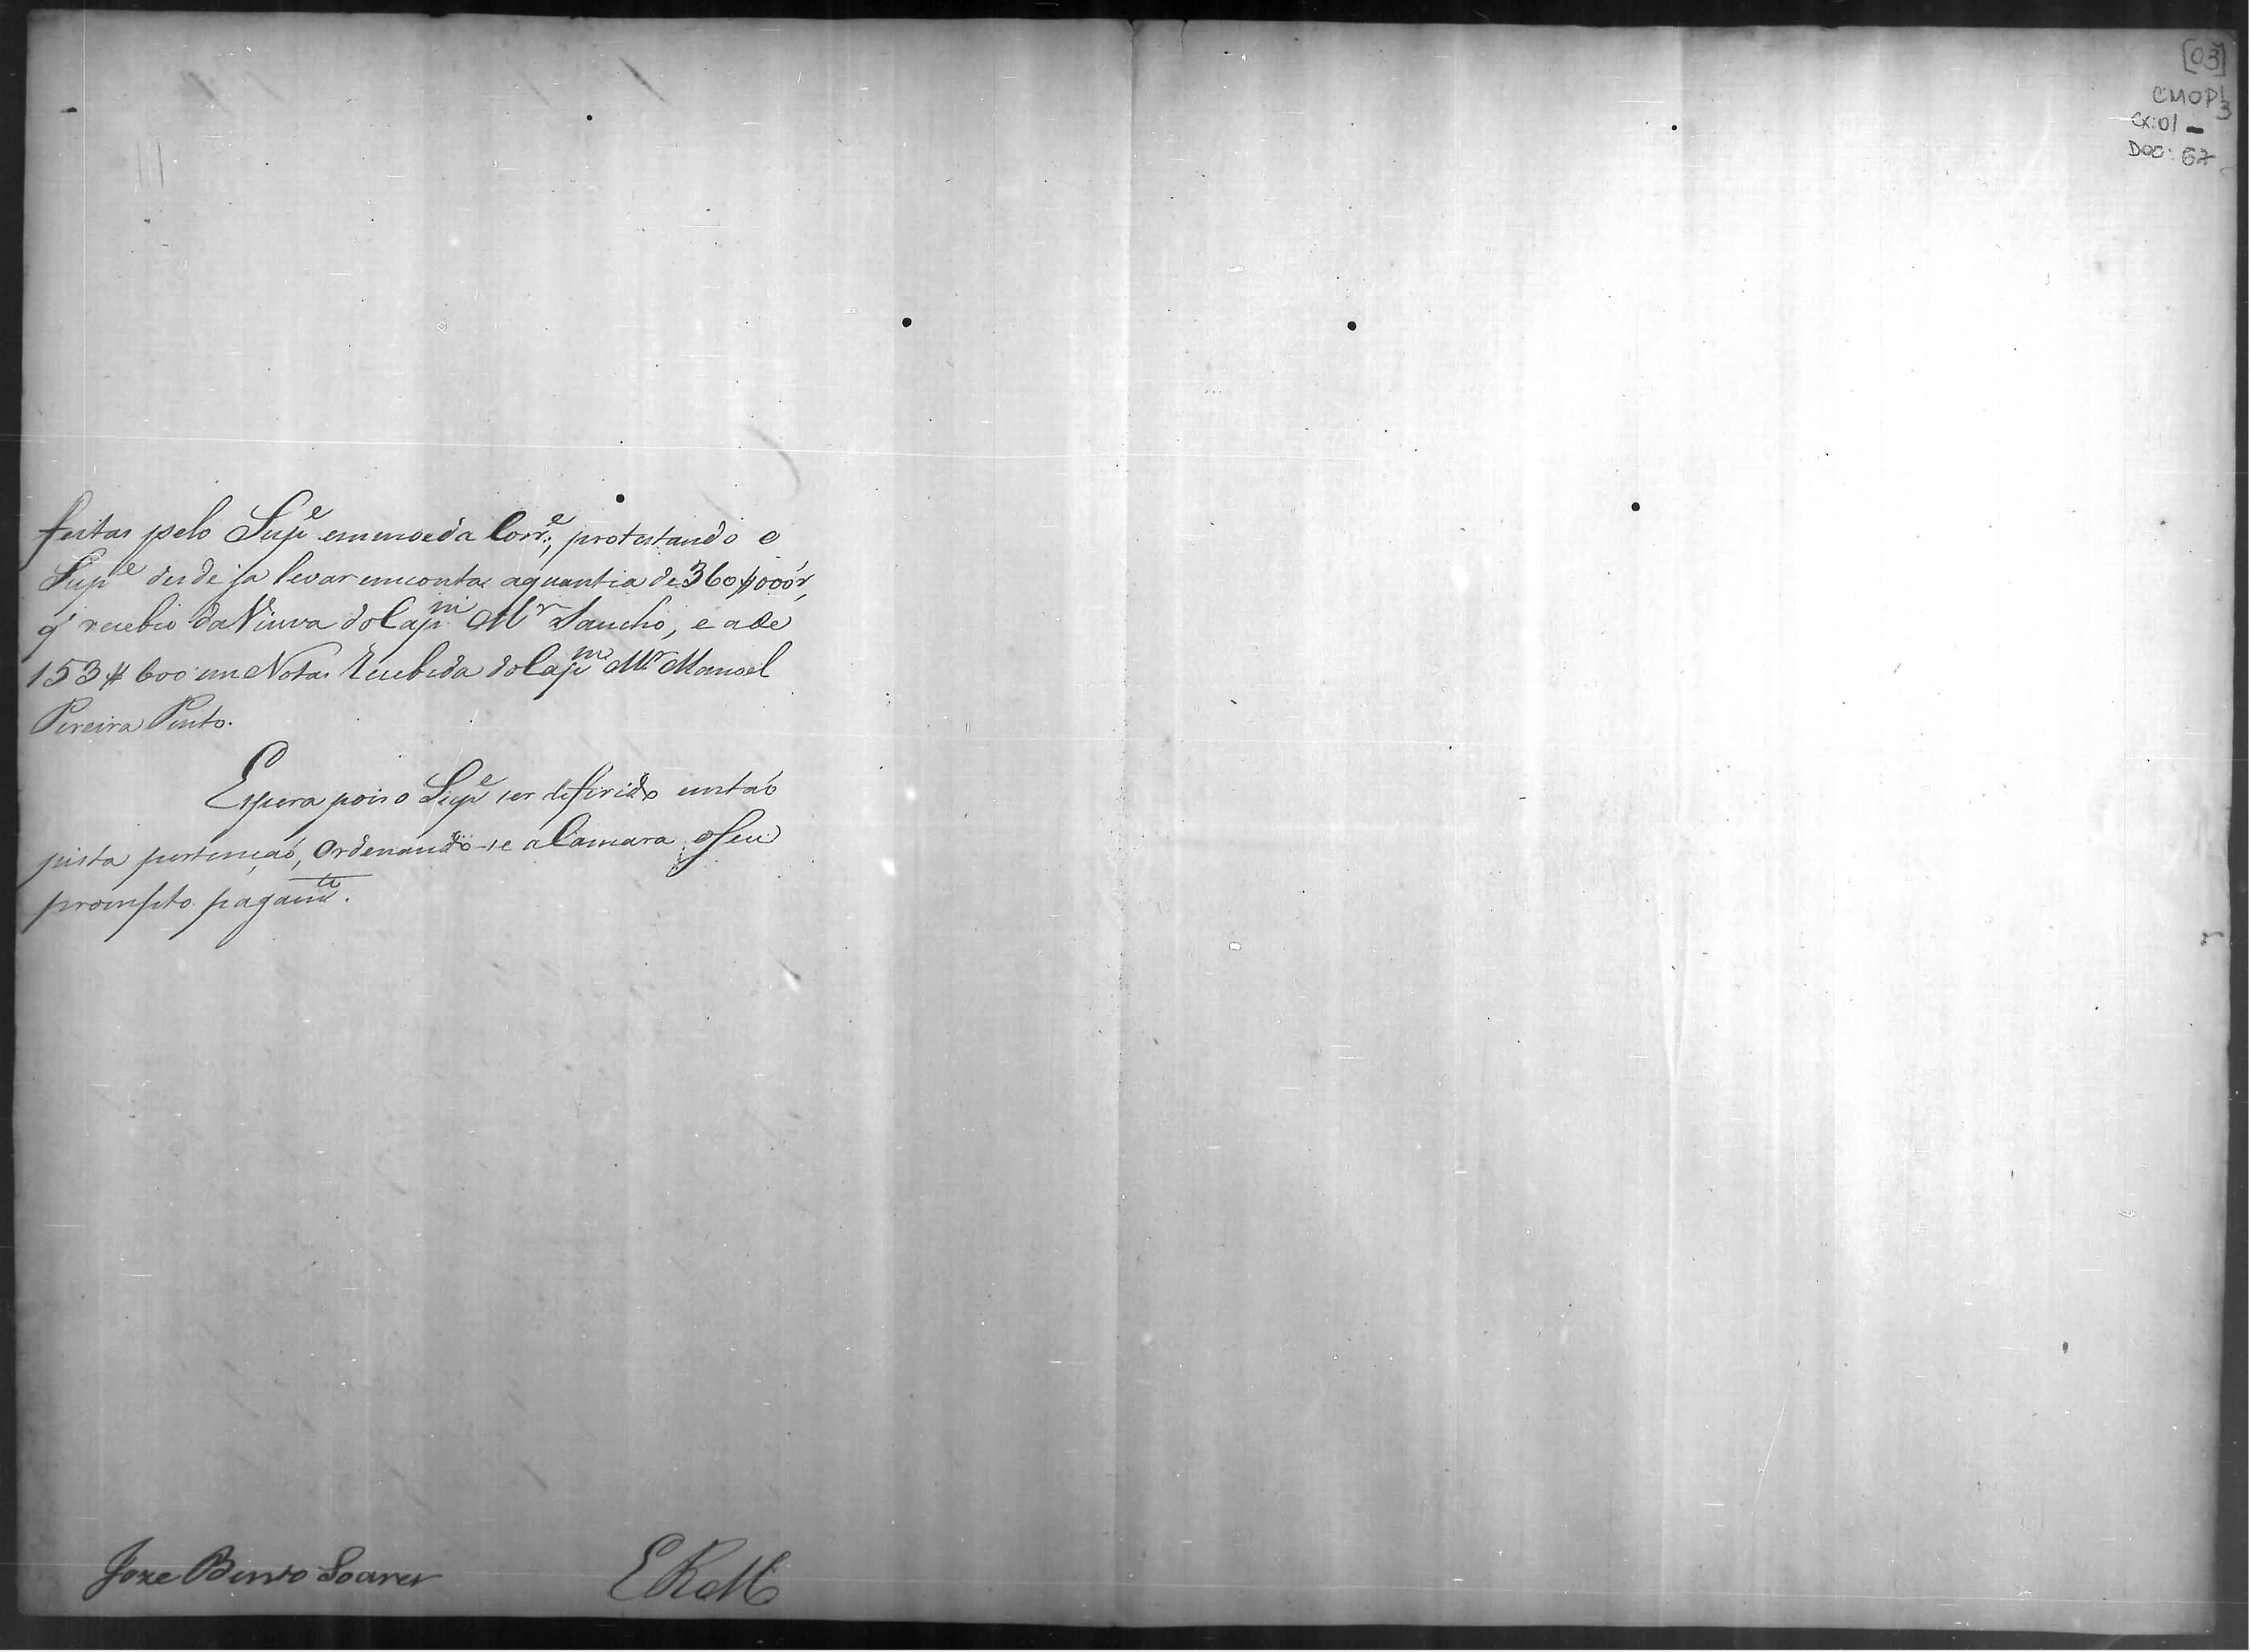 [03]
CMOP
3
CX: 01 -
DOC: 67
feitas pelo Supe em moeda Corre., protestando o
Supe desde ja levar em conta aquantia de 360$000 r,
q' recebeo da Viuva do Capm Mr Sancho, e a de
153$600 em Notas Recebida do Capm Mr Manoel
Pereira Pinto.
Espera pois o Supe ser deferido em taó
justa pertençaó, Ordenando-se a Camara o seu
prompto pagamto.
Joze Bento Soares
E R M